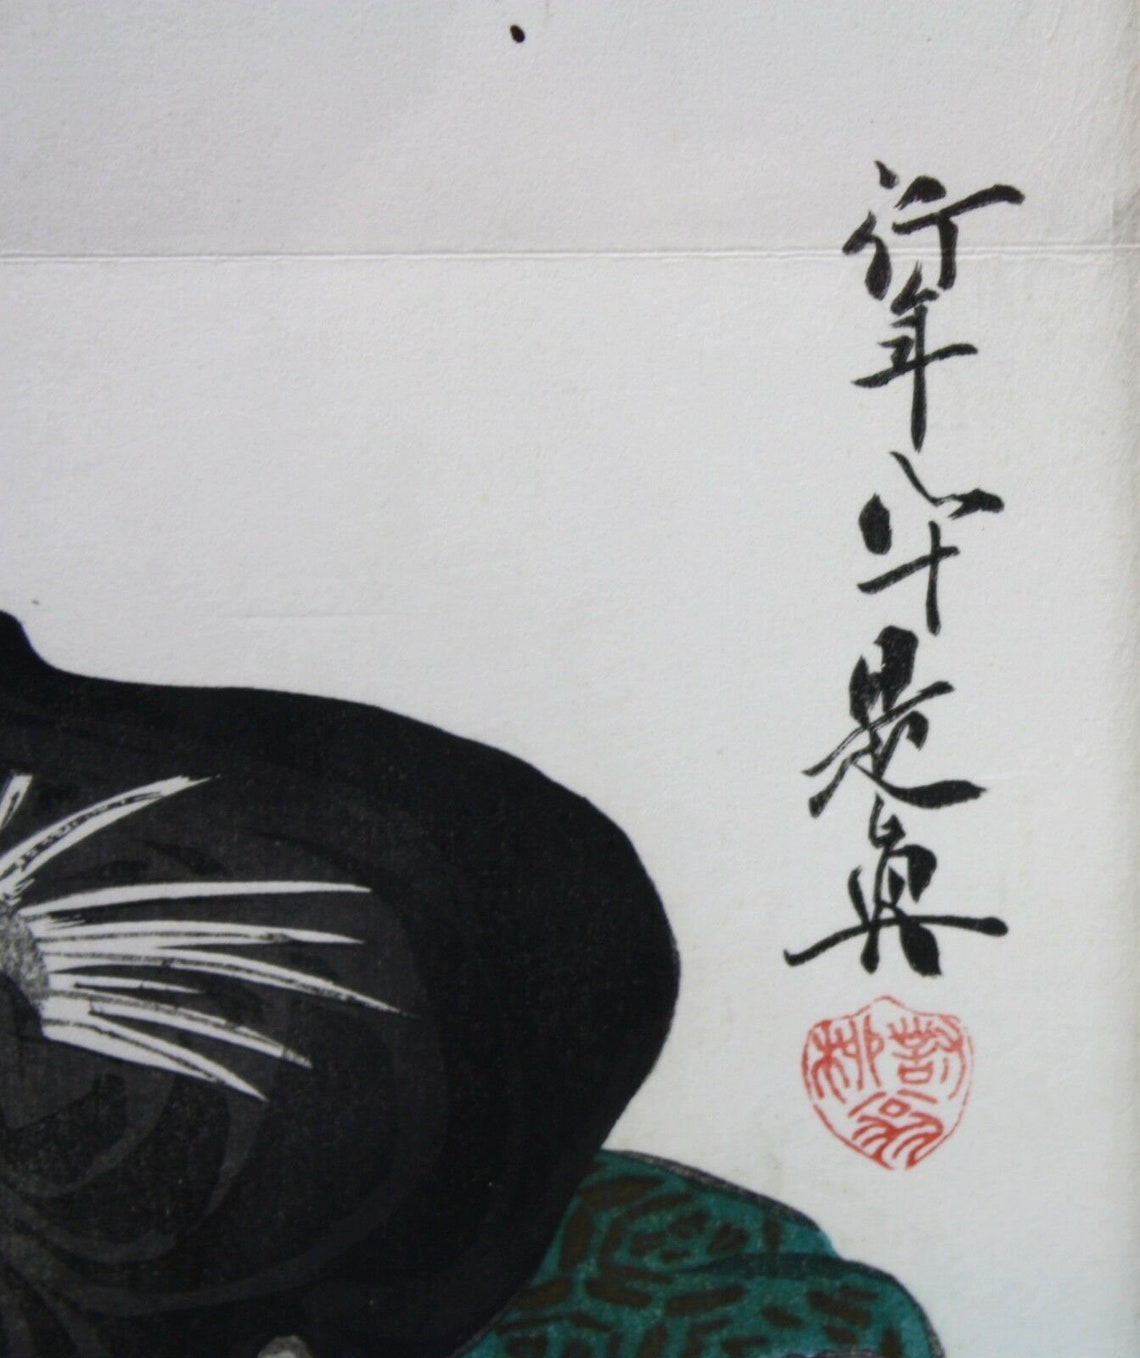 行年八十是真